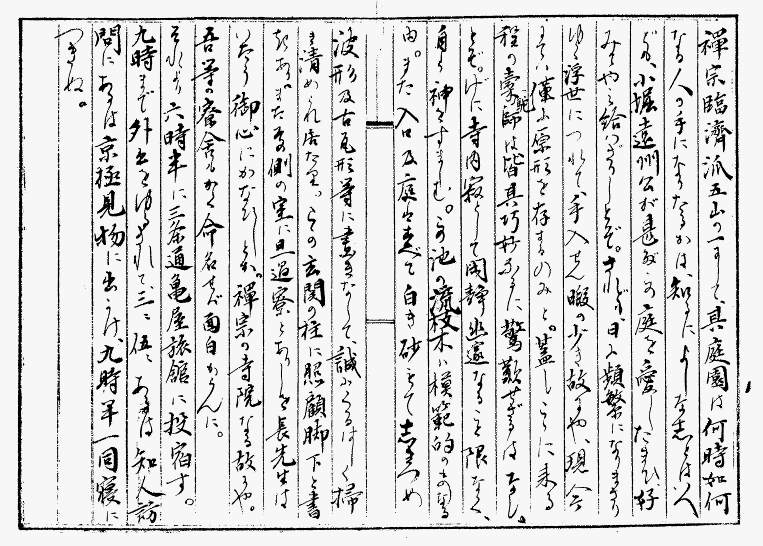 禅宗臨済派五山の一にして、其庭園は何時如何
なる人の手になりたるかは、知るによしな志とは云へ
ども、小堀遠州公が甚だこの庭を愛したまひ、好
みてやゝ給ひしとぞ。されど、日に頻繁になりまさり
ゆく浮世につれて手入せん暇の少き故にや、現今
にては、僅に原形を存するのみと。蓋しこゝに来る
程の業師は皆其巧妙なるに驚歎せざるはなし
とぞ。げに寺内寂として閑静幽邃なること限なく、
自ら神をすましむ。この池の流枝木は模範的のものなる
由。また入口及庭は すべて白き砂もて志きつめ
波形及古瓦形等に画きなして、誠にうるはしく掃
き清められ居たり。この玄関の柱に照顧脚下と書
きあり。また右側の室に旦過寮とありしを長先生は
いたう御心にかなひしとか。禅宗の寺院なる故にや。
吾等の寮舎もかく命名せば面白からんに。
それより六時半に三条通亀屋旅館に投宿す。
九時まで外出をゆるされて、三々伍々、あるは知人訪
問に、あるは京極見物に出かけ、九時半一同寝に
つきぬ。